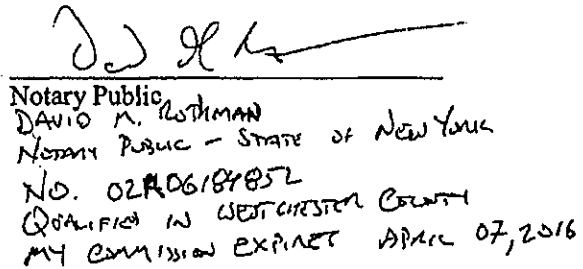 Notary Public
DAVID M. ROTHMAN
NOTARY PUBLIC - STATE OF NEW YORK
NO. 02R06184852
QUALIFIED IN WESTCHESTER COUNTY
MY COMMISSION EXPIRES APRIL 07, 2016